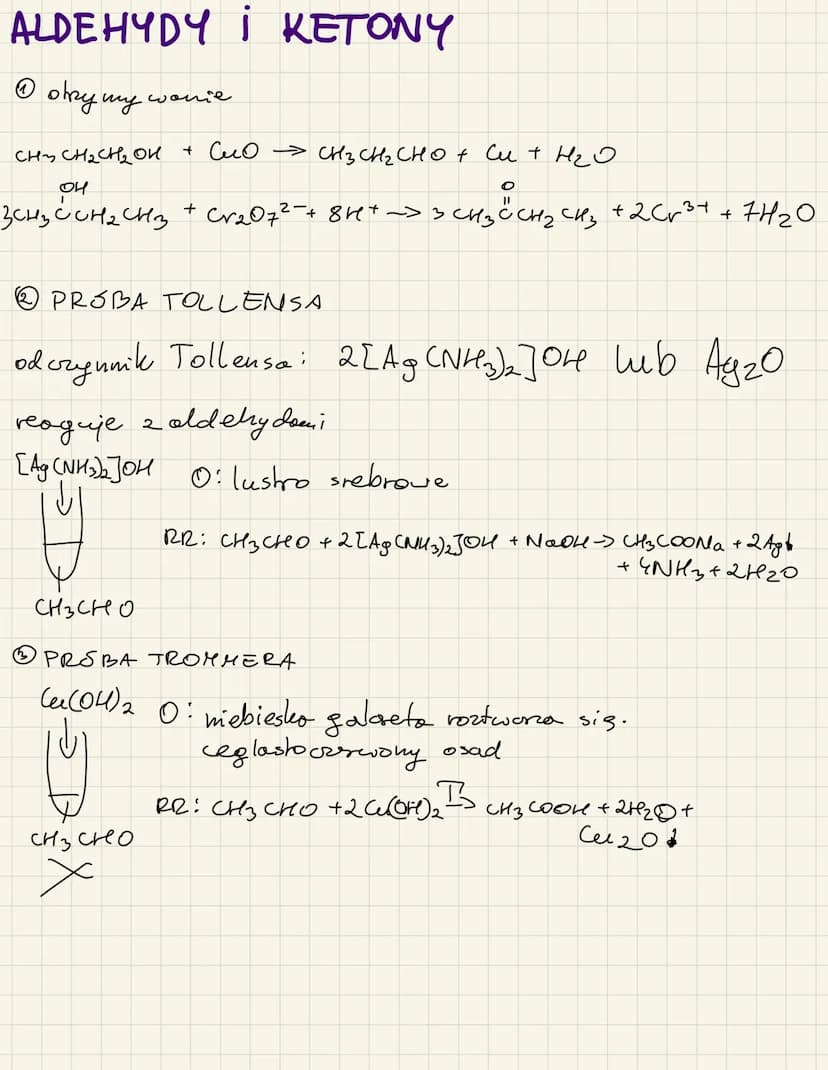 ALDEHYDY i KETONY
① otrzymywanie
CH3CH2CH2OH + CuO → CH3CH2CHO + Cu + H2O
OH O
3CH3CCH2CH3 + Cr2O7²⁻ + 8H⁺ → 3 CH3CCH2CH3 + 2Cr³⁺ + 7H2O
② PRÓBA TOLLENSA
odczynnik Tollensa: 2[Ag(NH3)2]OH lub Ag2O
reaguje z aldehydami
[Ag(NH3)2]OH O: lustro srebrowe
RR: CH3CHO + 2[Ag(NH3)2]OH + NaOH → CH3COONa + 2Ag↓
+ 4NH3 + 2H2O
CH3CHO
③ PRÓBA TROMMERA
Cu(OH)2 O: niebiesko galareta roztwarza się.
ceglastoczerwony osad
RR: CH3CHO + 2Cu(OH)2 T→ CH3COOH + 2H2O +
Cu2O↓
CH3CHO